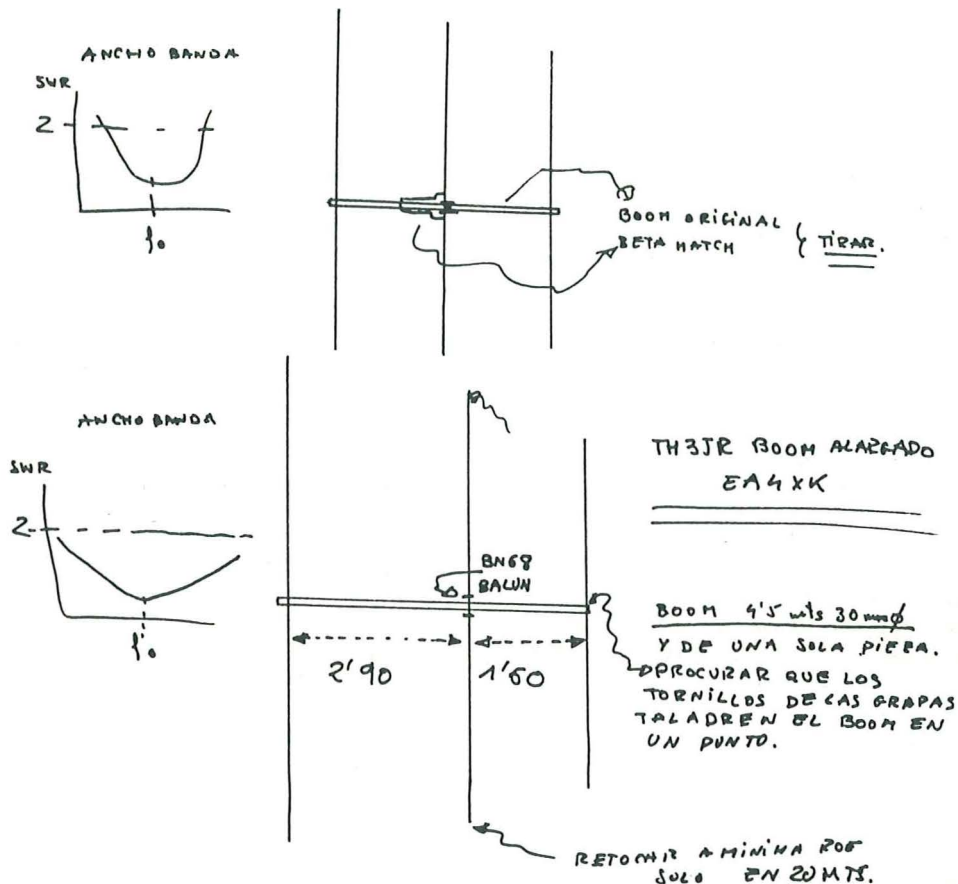 ANCHO BANDA
SWR
2
fo
BOOM ORIGINAL
BETA MATCH
TIRAR.
ANCHO BANDA
SWR
2
fo
TH3JR BOOM ALARGADO
EA4XK
BN68
BALUN
2'90
1'60
BOOM 4'5 mts 30 mm ø
Y DE UNA SOLA PIEZA.
PROCURAR QUE LOS
TORNILLOS DE LAS GRAPAS
TALADREN EL BOOM EN
UN PUNTO.
RETOCAR A MINIMA ROE
SOLO EN 20 MTS.